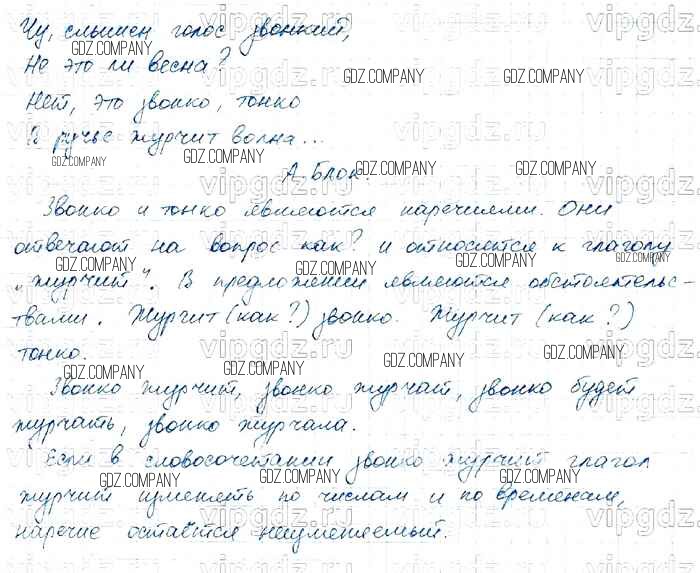 Чу, слышен голос звонкий,
Не это ли весна?
Нет, это звонко, тонко
В ручье журчит волна...
А. Блок.
Звонко и тонко являются наречиями. Они
отвечают на вопрос как? и относятся к глаголу
„журчит". В предложении являются обстоятельс-
твами. Журчит (как?) звонко. Журчит (как?)
тонко.
Звонко журчит, звонко журчат, звонко будет
журчать, звонко журчала.
Если в словосочетании звонко журчит глагол
журчит изменять по числам и по временам,
наречие остаётся неизменяемый.